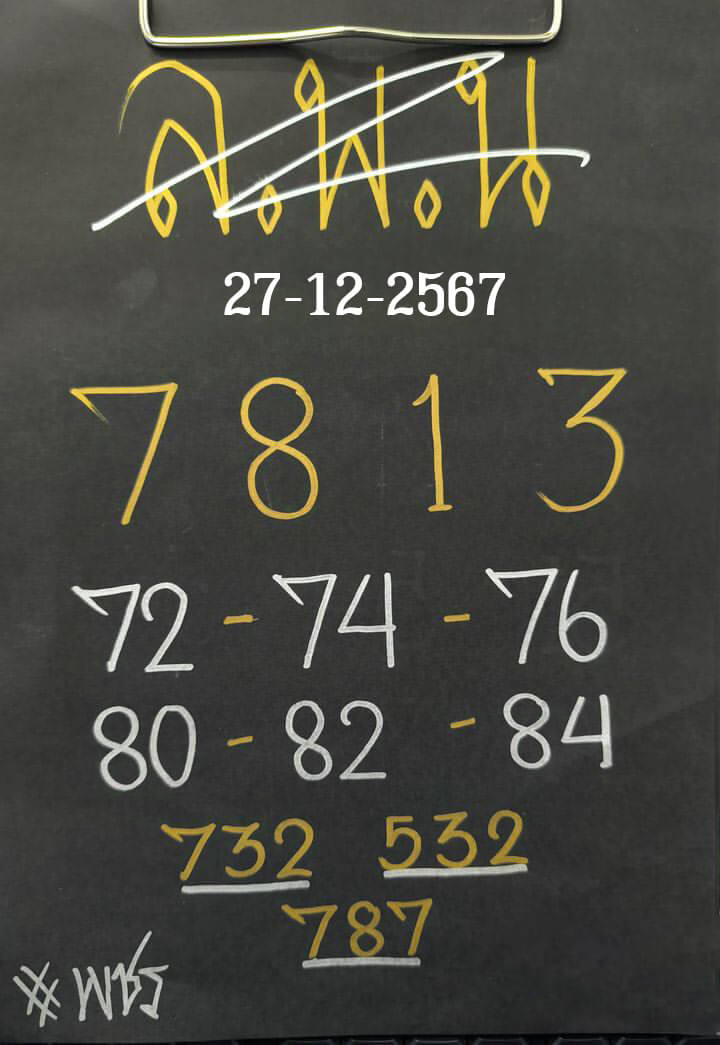 ล.พ.น
27-12-2567
7 8 1 3
72 - 74 - 76
80 - 82 - 84
732 532
787
#พชร